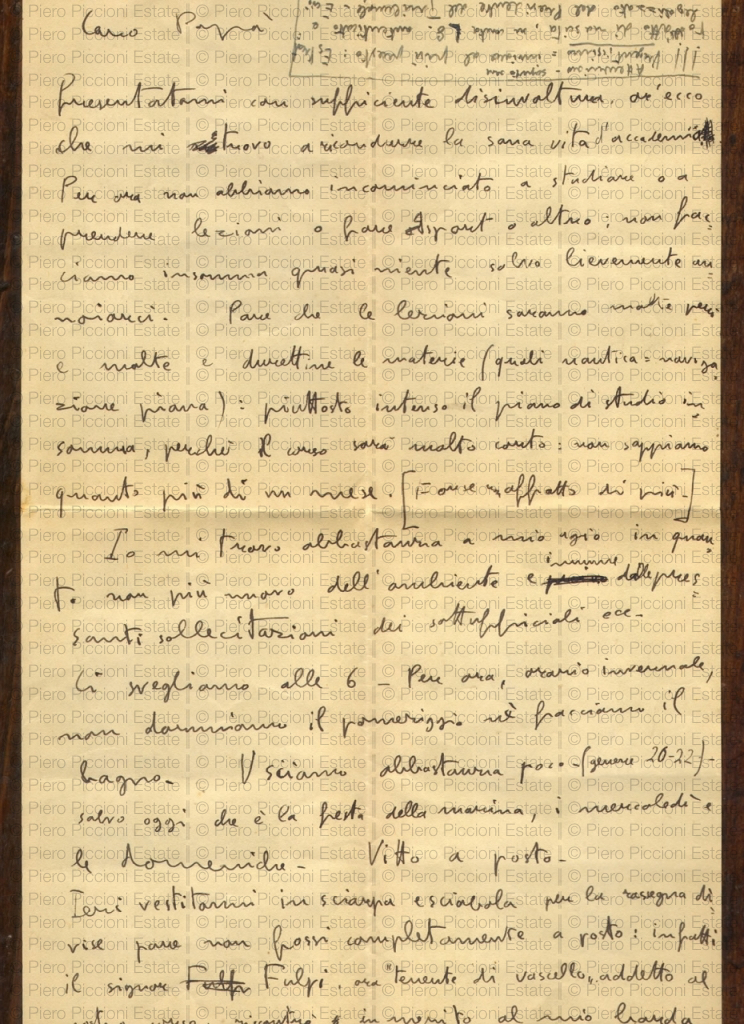 Caro Papà
Attenzione =
!!! Urgentissimo = inviare al più presto:
di nascita, in carta L 8. autenticato e
legalizzato dal Presidente del Tribunale =
Presentatomi con sufficiente disinvoltura, or'ecco
che mi trovo a ricondurre la sana vita d'accademia
Per ora non abbiamo incominciato a studiare o a
prendere lezioni o fare sport o altro: non fac=
ciamo insomma quasi niente salvo lievemente an=
noiarci. Pare che le lezioni saranno molte però
e molte e durettine le materie (quali nautica = naviga
zione piana): piuttosto intenso il piano di studio in
somma, perchè il corso sarà molto corto: non sappiamo
quanto più di un mese. [Forse affatto di più-]
Io mi trovo abbastanza a mio agio in quan=
to non più nuovo dell'ambiente e immune dalle pres=
santi sollecitazioni dei sottufficiali ecc-
Ci svegliamo alle 6 - Per ora, orario invernale,
non dormiamo il pomeriggio nè facciamo il
bagno- Usciamo abbastanza poco-(genere 20-22)-
salvo oggi che è la festa della marina, i mercoledì e
le domeniche- Vitto a posto-
Ieri vestitomi in sciarpa e sciabola per la rassegna di=
vise pare non fossi completamente a posto: infatti
il signor Fulpi, ora tenente di vascello, addetto al
corso, in merito al mio